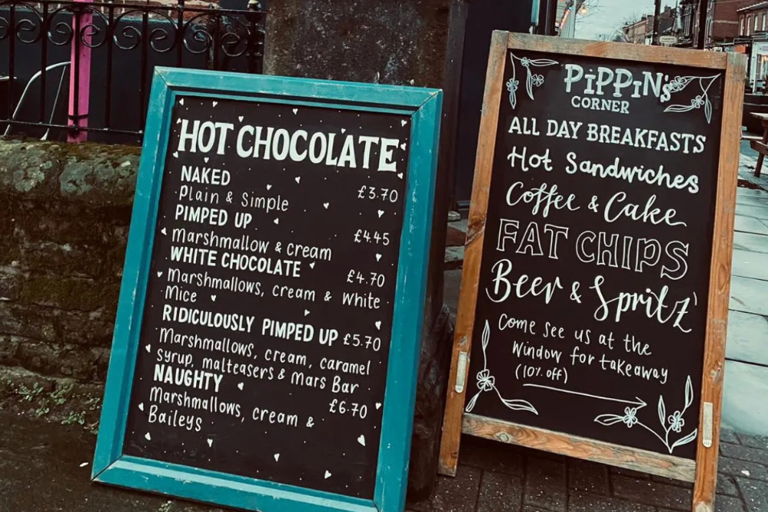 HOT CHOCOLATE
NAKED £3.70
Plain & Simple
PIMPED UP £4.45
Marshmallow & cream
WHITE CHOCOLATE £4.70
Marshmallows, cream & white
Mice
RIDICULOUSLY PIMPED UP £5.70
Marshmallows, cream, caramel
syrup, malteasers & Mars Bar
NAUGHTY £6.70
Marshmallows, cream &
Baileys
PiPPiN's
CORNER
ALL DAY BREAKFASTS
Hot Sandwiches
Coffee & Cake
FAT CHIPS
Beer & Spritz'
Come see us at the
window for takeaway
(10% off)